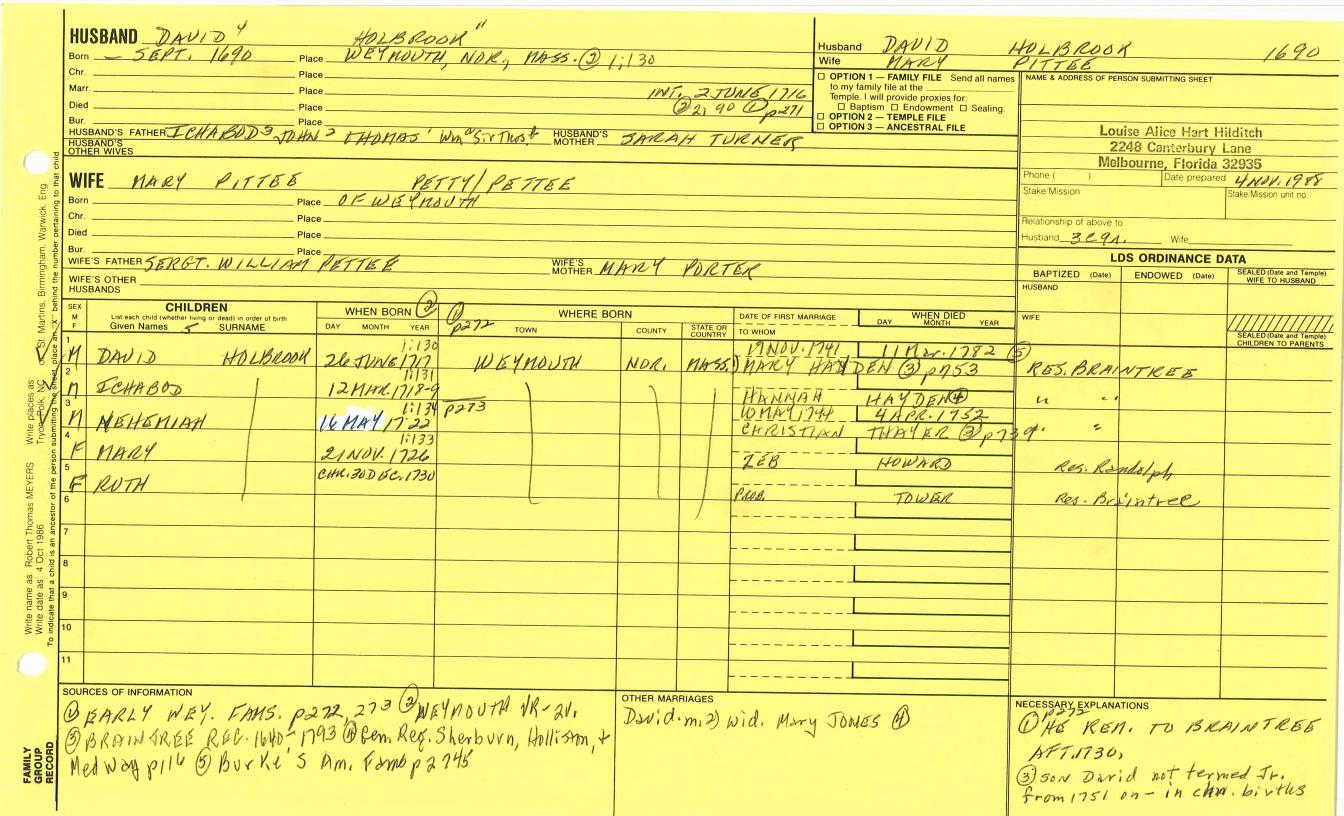 HUSBAND DAVID 4 HOLBROOK "
Born - SEPT. 1690 Place WEYMOUTH, NOR., MASS. ② 1:130
Chr. Place
Marr. Place INT. 2 JUNE 1716
Died Place ② 2:90 ① p271
Bur. Place
HUSBAND'S FATHER ICHABOD 3 JOHN 2 THOMAS 1 Wm Sir Thos. HUSBAND'S MOTHER SARAH TURNER
HUSBAND'S OTHER WIVES
WIFE MARY PITTEE PETTY/PETTEE
Born Place OF WEYMOUTH
Chr. Place
Died Place
Bur. Place
WIFE'S FATHER SERGT. WILLIAM PETTEE WIFE'S MOTHER MARY PORTER
WIFE'S OTHER HUSBANDS
Husband DAVID HOLBROOK 1690
Wife MARY PITTEE
OPTION 1 — FAMILY FILE Send all names
to my family file at the
Temple. I will provide proxies for:
Baptism Endowment Sealing.
OPTION 2 — TEMPLE FILE
OPTION 3 — ANCESTRAL FILE
NAME & ADDRESS OF PERSON SUBMITTING SHEET
Louise Alice Hart Hilditch
2248 Canterbury Lane
Melbourne, Florida 32935
Phone ( ) Date prepared 4 NOV. 1988
Stake/Mission Stake/Mission unit no.
Relationship of above to
Husband 3C9r. Wife
LDS ORDINANCE DATA
BAPTIZED (Date) ENDOWED (Date) SEALED (Date and Temple) WIFE TO HUSBAND
HUSBAND
WIFE
SEALED (Date and Temple) CHILDREN TO PARENTS
SEX M F
CHILDREN
List each child (whether living or dead) in order of birth
Given Names 5 SURNAME
WHEN BORN ②
DAY MONTH YEAR
WHERE BORN
① p272 TOWN COUNTY STATE OR COUNTRY
DATE OF FIRST MARRIAGE
TO WHOM
WHEN DIED
DAY MONTH YEAR
1 M DAVID HOLBROOK 1:130 26 JUNE 1717 WEYMOUTH NOR. MASS. 19 NOV. 1741 11 Mar. 1782 ⑤ MARY HAYDEN ③ p753 RES. BRAINTREE
2 M ICHABOD 1:131 12 MAR. 1718-9 HANNAH HAYDEN ④ " "
3 M NEHEMIAH 1:134 16 MAY 1722 p273 10 MAY 1744 4 APR. 1752 CHRISTIAN THAYER ③ p739 " "
4 F MARY 1:133 21 NOV. 1726 ZEB HOWARD Res. Randolph
5 F RUTH CHR. 30 DEC. 1730 PROB. TOWER Res. Braintree
6
7
8
9
10
11
SOURCES OF INFORMATION
① EARLY WEY. FAMS. p272, 273 ② WEYMOUTH VR - 2V.
③ BRAINTREE REC. 1640-1793 ④ Gen. Reg. Sherburn, Holliston, +
Medway p116 ⑤ Burke's Am. Fams p2745
OTHER MARRIAGES
David m. 2) wid. Mary JONES ④
NECESSARY EXPLANATIONS
① p272 HE REM. TO BRAINTREE
AFT. 1730.
③ son David not termed Jr.
from 1751 on - in chn. births
Write name as: Robert Thomas MEYERS Write places as: Tryon, Polk, NC or St. Martins, Birmingham, Warwick, Eng.
Write date as: 4 Oct 1986
To indicate that a child is an ancestor of the person submitting the sheet, place an "X" behind the number pertaining to that child
FAMILY GROUP RECORD